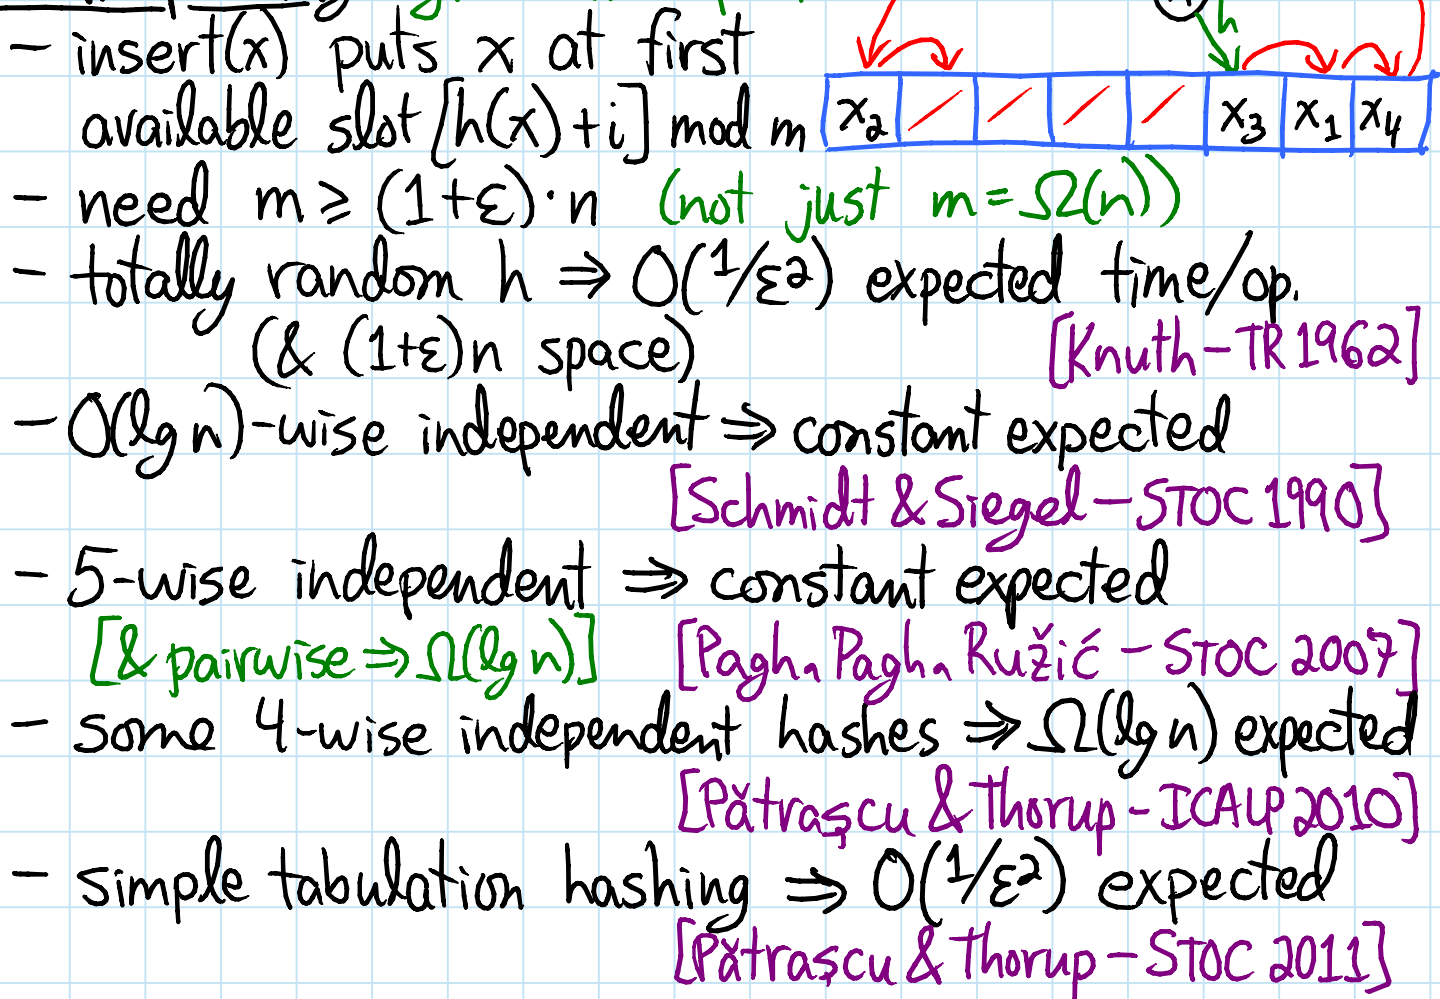 - insert(x) puts x at first
available slot [h(x)+i] mod m
x₂ x₃ x₁ x₄
h
- need m ≥ (1+ε)·n (not just m=Ω(n))
- totally random h ⇒ O(1/ε²) expected time/op.
(& (1+ε)n space) [Knuth-TR 1962]
- O(lg n)-wise independent ⇒ constant expected
[Schmidt & Siegel - STOC 1990]
- 5-wise independent ⇒ constant expected
[& pairwise ⇒ Ω(lg n)] [Pagh, Pagh, Ružić - STOC 2007]
- some 4-wise independent hashes ⇒ Ω(lg n) expected
[Pătraşcu & Thorup - ICALP 2010]
- simple tabulation hashing ⇒ O(1/ε²) expected
[Pătraşcu & Thorup - STOC 2011]